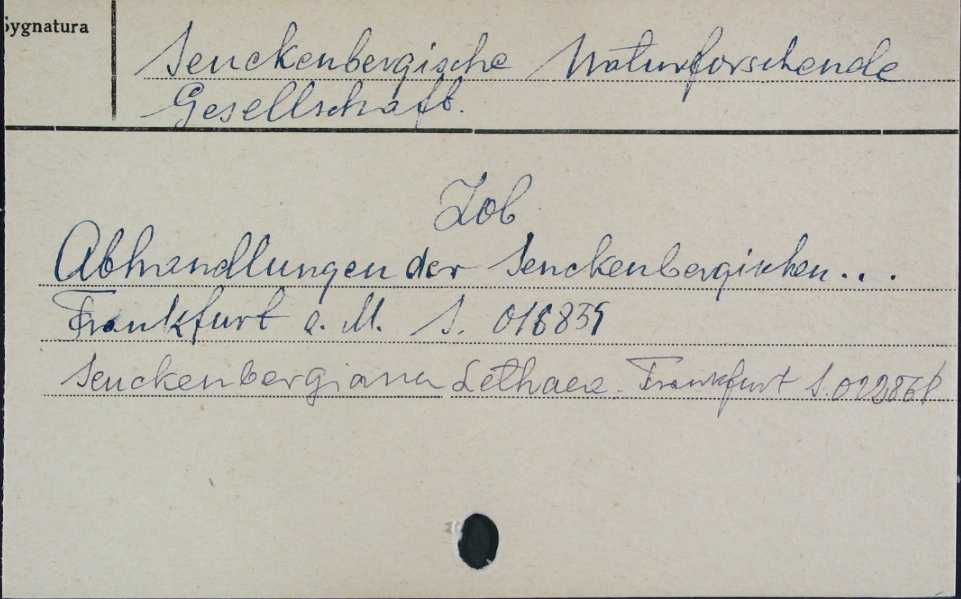 Sygnatura
Senckenbergische Naturforschende
Gesellschaft.
Zob
Abhandlungen der Senckenbergischen...
Frankfurt a. M. S.
Senckenbergiana Lethaea. Frankfurt